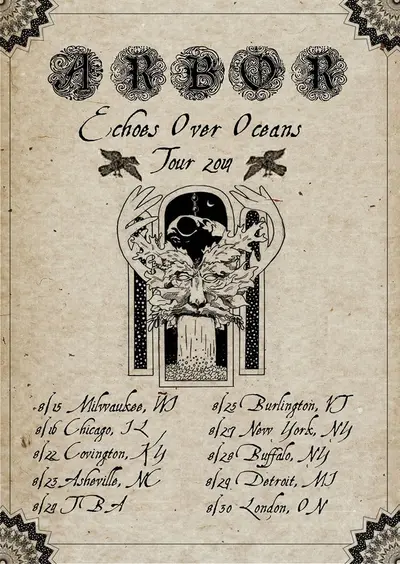 ARBOR
Echoes Over Oceans
Tour 2019
8/15 Milwaukee, WI
8/16 Chicago, IL
8/22 Covington, KY
8/23 Asheville, NC
8/24 TBA
8/25 Burlington, VT
8/27 New York, NY
8/28 Buffalo, NY
8/29 Detroit, MI
8/30 London, ON